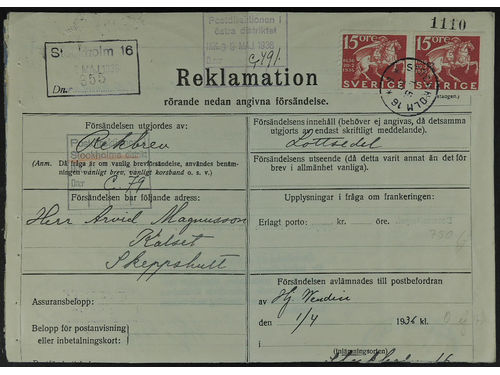 1110
Postdirektionen i
östra distriktet
MAJ 1936
C 491.
Stockholm 16
MAJ 1936
355
D.nr
15 ÖRE
SVERIGE
15 ÖRE
SVERIGE
Reklamation
rörande nedan angivna försändelse.
Försändelsen utgjordes av:
Rekbrev
(Anm. Då fråga är om vanlig brevförsändelse, användes benäm-
ningen vanligt brev, vanligt korsband o. s. v.)
Stockholm
D.nr
C 79
Försändelsen bar följande adress:
Herr Arvid Magnusson
Kalset
Skeppshult
Assuransbelopp:
Belopp för postanvisning
eller inbetalningskort:
Försändelsens innehåll (behöver ej angivas, då detsamma
utgjorts av endast skriftligt meddelande).
Lottsedel
Försändelsens utseende (då detta varit annat än det för
brev i allmänhet vanliga).
Upplysningar i fråga om frankeringen:
Erlagt porto: kr. öre.
750
Försändelsen avlämnades till postbefordran
av Hj. Wendin
den 1/4 1936 kl.
(Inlämningsorten)